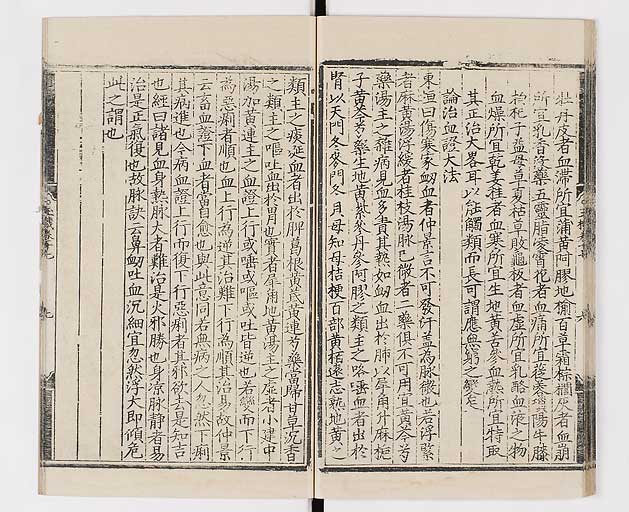 牡丹皮者血滯所宜蒲黃阿膠地榆百草霜棕櫚灰者血崩
所宜乳香沒藥五靈脂凌霄花者血痛所宜蓯蓉陽牛膝
枸杞子益母草夏枯草敗龜板者血虛所宜乳酪血液之物
血燥所宜乾姜桂者血寒所宜生地黃苦參血熱所宜特取
其正治大畧耳以能觸類而長可謂應無窮之變矣
論治血證大法
東洹曰傷寒家衂血者仲景言不可發汗蓋為脉微也若浮緊
者麻黃湯浮緩者桂枝湯脉已微者二藥俱不可用宜黃芩芍
藥湯主之雜病見血多責其熱如衂血出於肺以犀角升麻梔
子黃芩芍藥生地黃紫參丹參阿膠之類主之咯唾血者出於
腎以天門冬麥門冬貝母知母桔梗百部黃栢遠志熟地黃之
類主之痰涎血者出於脾葛根黃芪黃連芍藥當歸甘草沉香
之類主之嘔吐血出於胃也實者犀角地黃湯主之虛者小建中
湯加黃連主之血證上行或唾或嘔或吐皆逆也若變而下行
為惡痢者順也血上行為逆其治難下行為順其治易故仲景
云畜血證下血者當自愈也與此意同右無病之人忽然下痢
其病進也今病血證上行而復下行惡痢者其邪欲去是知吉
也經曰諸見血身熱脉大者難治是火邪勝也身凉脉靜者易
治是正氣復也故脉訣云鼻衂吐血沉細宜忽然浮大即傾危
此之謂也